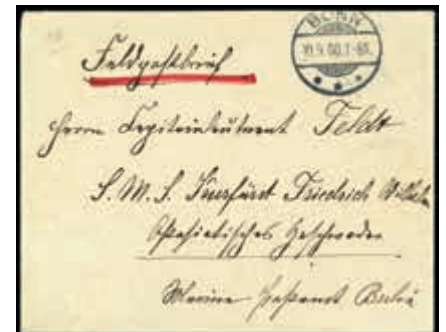 BONN
10.9.00.7-8V.
Feldpostbrief
Herrn Capitainleutnant Feldt
S. M. S. Kurfürst Friedrich Wilhelm
Ostasiatisches Geschwader
Marine Postamt Berlin